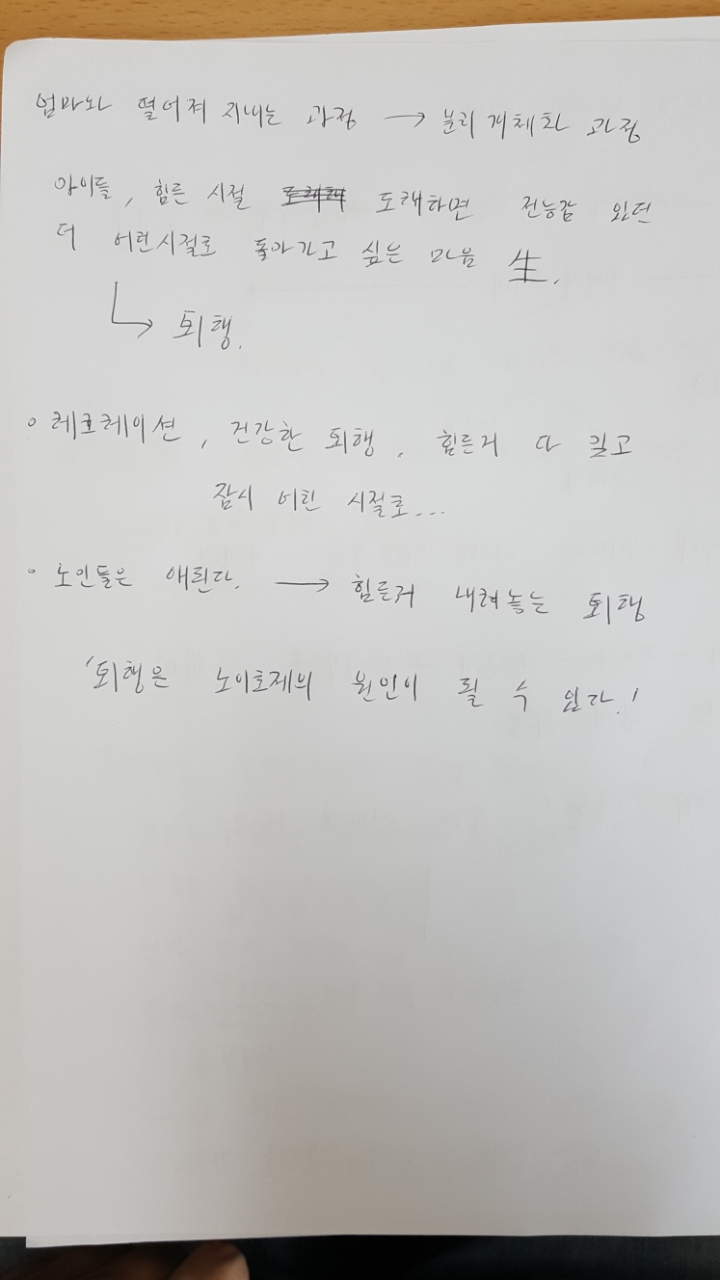 엄마와 떨어져 지내는 과정 → 분리 개체화 과정
아이들, 힘든 시절 도래하면 전능감 있던
더 어린시절로 돌아가고 싶은 마음 生.
↳ 퇴행.
◦ 레크레이션, 건강한 퇴행, 힘든거 다 잊고
잠시 어린 시절로...
◦ 노인들은 애된다. → 힘든거 내려놓는 퇴행
'퇴행은 노이로제의 원인이 될 수 있다.'